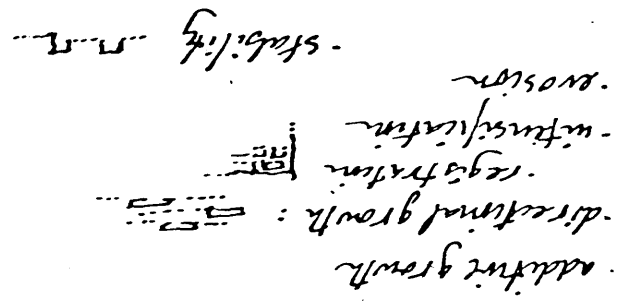 · additive growth
· directional growth :
· registration
· intensification
· erosion
· stability